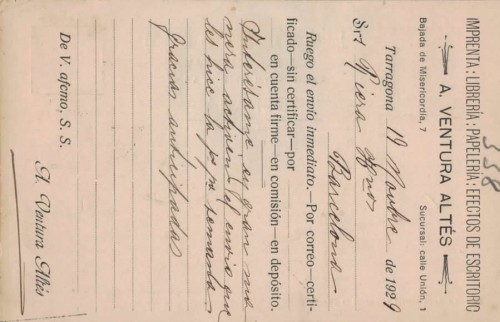 338
IMPRENTA : LIBRERÍA : PAPELERÍA : EFECTOS DE ESCRITORIO
A. VENTURA ALTÉS
Bajada de Misericordia, 7 Sucursal: calle Unión, 1
Tarragona 19 Novbre de 1929
Srs Riera Hnos
Barcelona
Ruego el envío inmediato.-Por correo-certi-
ficado-sin certificar-por
en cuenta firme-en comisión-en depósito.
Interésame en gran ma
nera activen el envío que
les hice la pp. semana.
Gracias anticipadas
De V. afcmo. S. S.
A. Ventura Altés